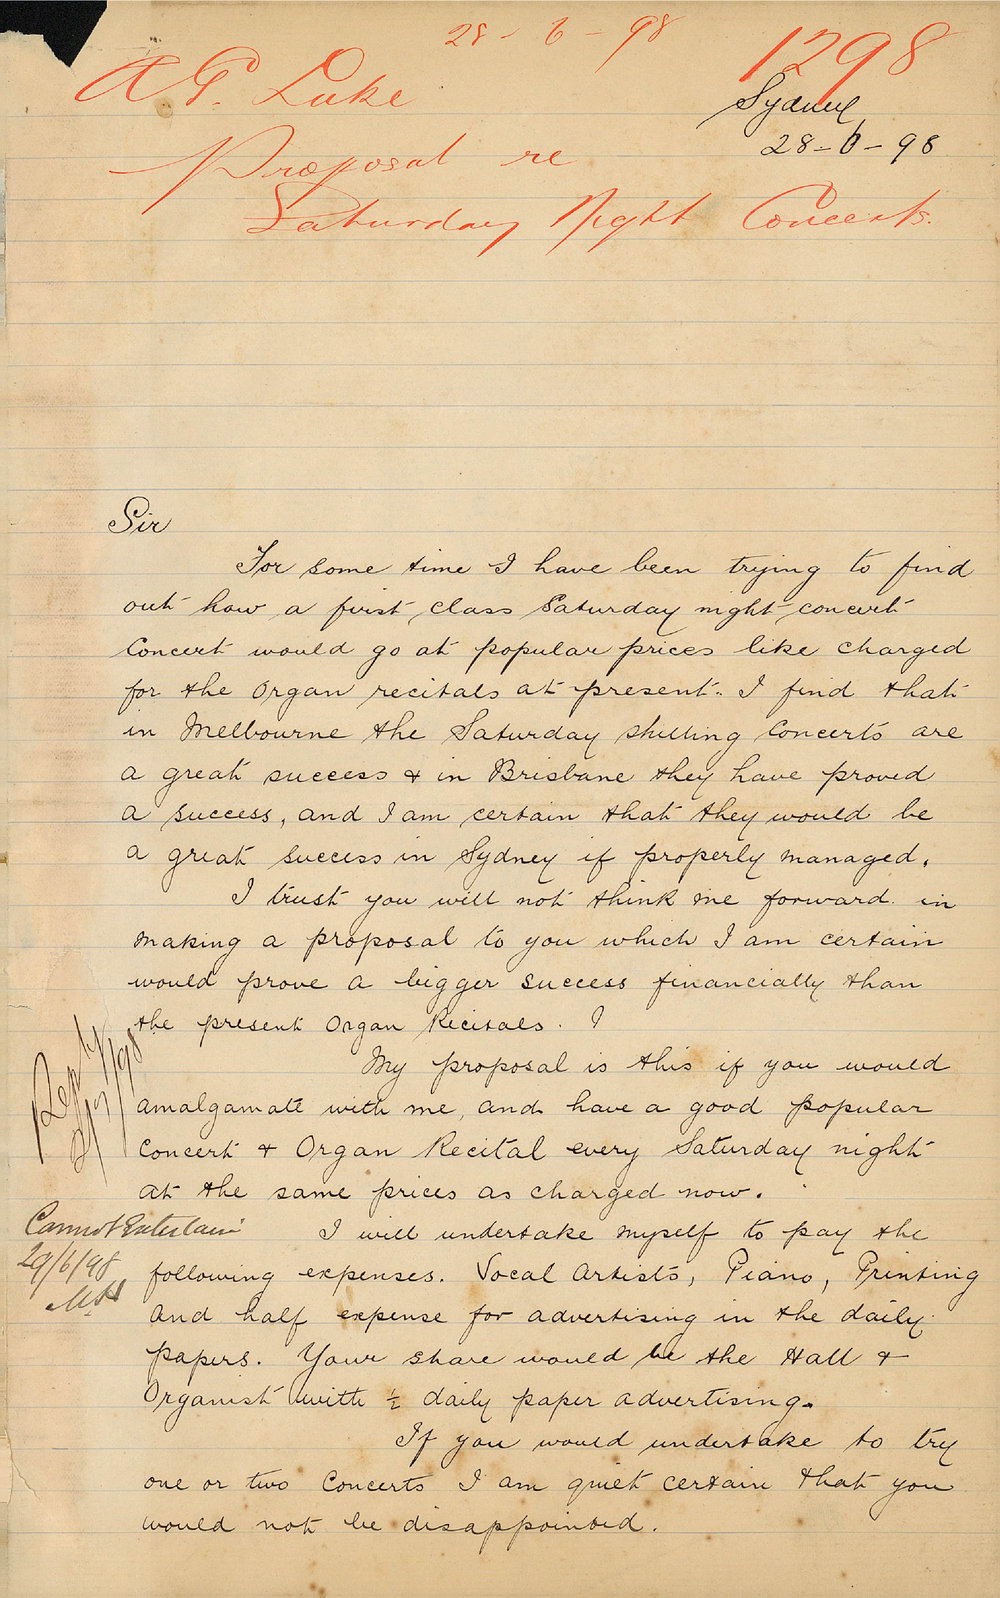 28-6-98
1298
A. P. Luke
Sydney
28-6-98
Proposal re
Saturday Night Concerts.
Sir
For some time I have been trying to find
out how a first class Saturday night concert
Concert would go at popular prices like charged
for the Organ recitals at present. I find that
in Melbourne the Saturday shilling Concerts are
a great success & in Brisbane they have proved
a success, and I am certain that they would be
a great success in Sydney if properly managed.
I trust you will not think me forward in
making a proposal to you which I am certain
would prove a bigger success financially than
the present Organ Recitals. I
My proposal is this if you would
amalgamate with me, and have a good popular
Concert & Organ Recital every Saturday night
at the same prices as charged now.
I will undertake myself to pay the
following expenses. Vocal Artists, Piano, Printing
and half expense for advertising in the daily
papers. Your share would be the Hall &
Organist with ½ daily paper advertising.
If you would undertake to try
one or two Concerts I am quiet certain that you
would not be disappointed.
Cannot Entertain
29/6/98